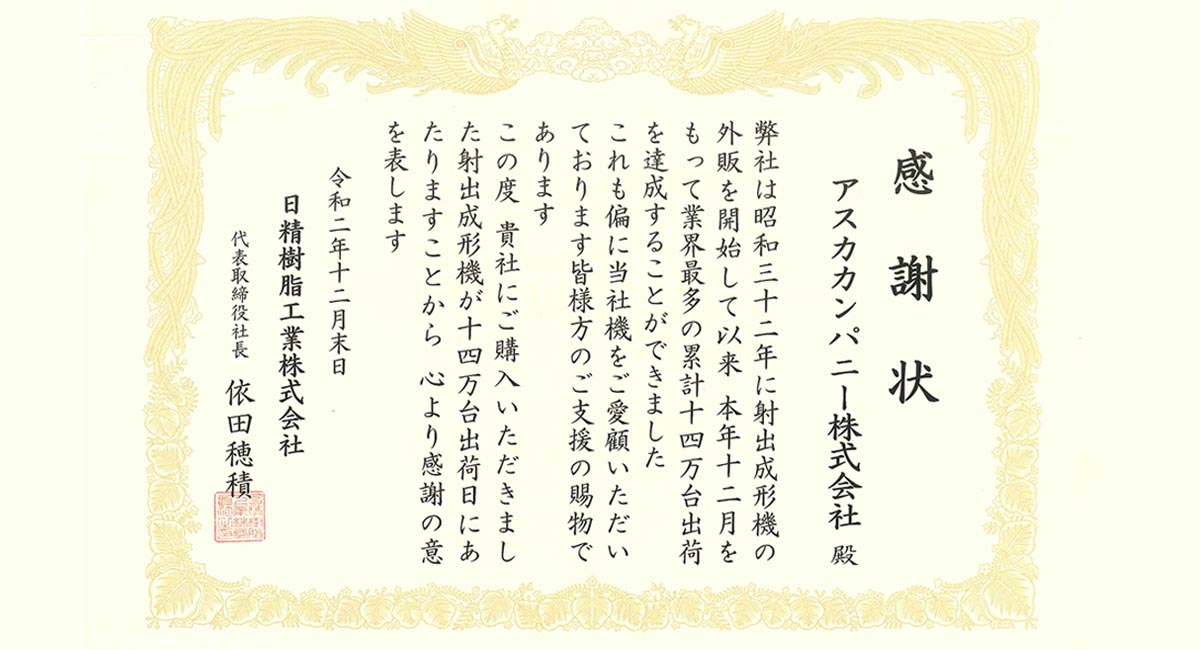 感謝状
アスカカンパニー株式会社 殿
弊社は昭和三十二年に射出成形機の
外販を開始して以来 本年十二月を
もって業界最多の累計十四万台出荷
を達成することができました
これも偏に当社機をご愛顧いただい
ております皆様方のご支援の賜物で
あります
この度 貴社にご購入いただきまし
た射出成形機が十四万台出荷日にあ
たりますことから 心より感謝の意
を表します
令和二年十二月末日
日精樹脂工業株式会社
代表取締役社長 依田穂積